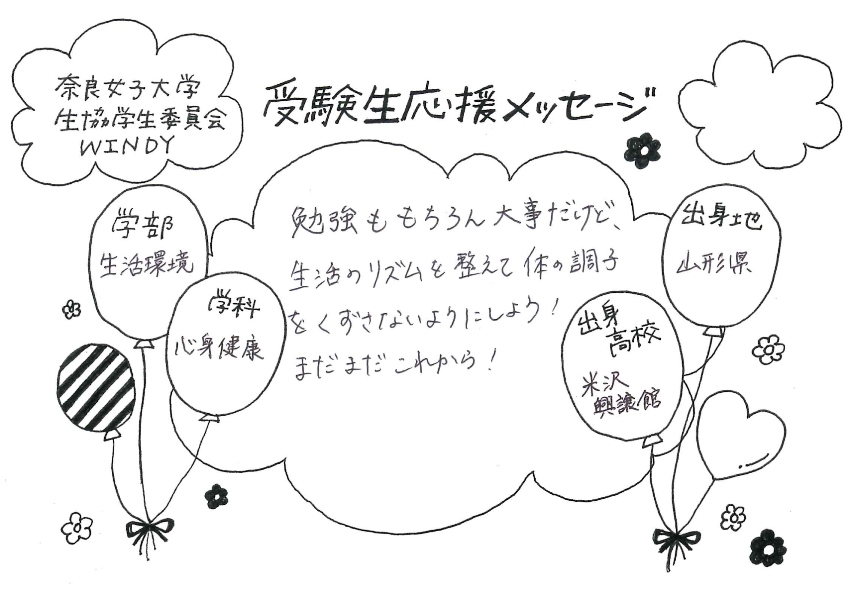 奈良女子大学
生協学生委員会
WINDY
受験生応援メッセージ
学部
生活環境
学科
心身健康
勉強ももちろん大事だけど、
生活のリズムを整えて体の調子
をくずさないようにしよう!
まだまだこれから!
出身地
山形県
出身
高校
米沢
興譲館